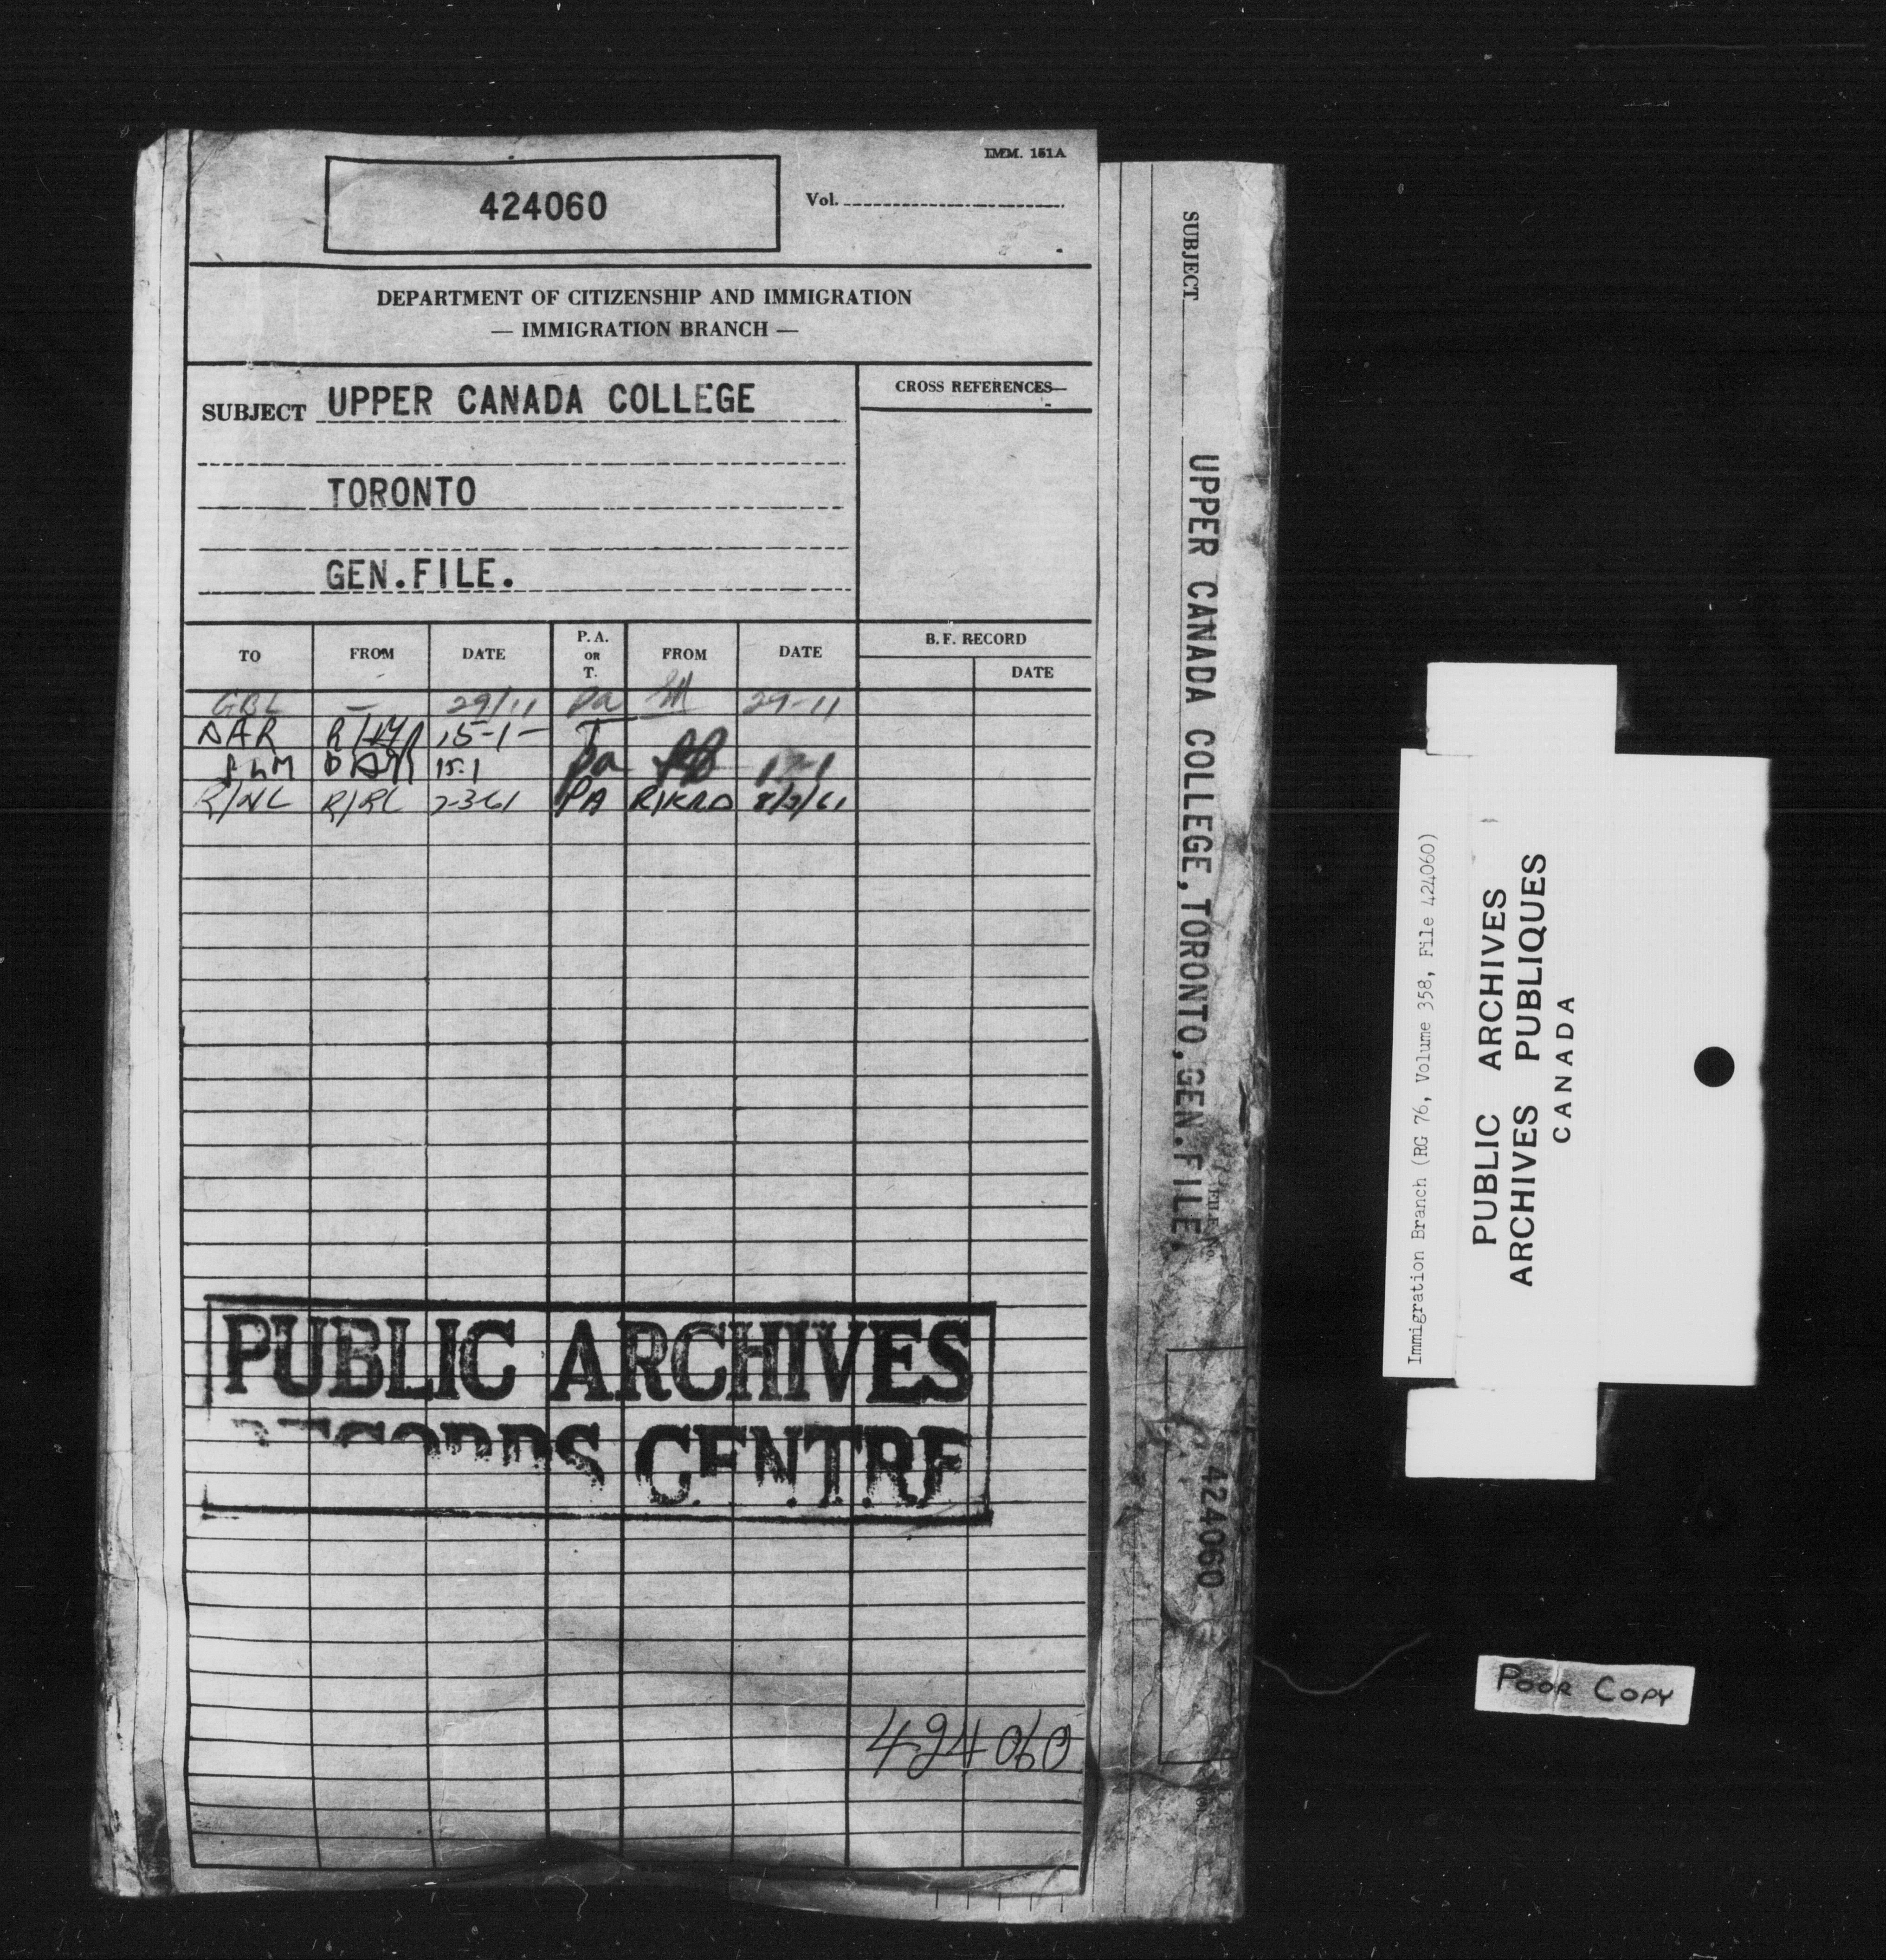 IMM. 151A
424060
Vol.
DEPARTMENT OF CITIZENSHIP AND IMMIGRATION
— IMMIGRATION BRANCH —
SUBJECT UPPER CANADA COLLEGE
TORONTO
GEN.FILE.
CROSS REFERENCES—
TO FROM DATE P. A. OR T. FROM DATE B. F. RECORD
DATE
GBL — 29/11 Pa 29-11
DAR 15-1- T
15-1 Pa 17-1
R/NL R/RL 2-3-61 PA R/KRD 8/3/61
PUBLIC ARCHIVES
RECORDS CENTRE
424060
SUBJECT
UPPER CANADA COLLEGE, TORONTO, GEN.FILE.
FILE No.
424060
Immigration Branch (RG 76, Volume 358, File 424060)
PUBLIC ARCHIVES
ARCHIVES PUBLIQUES
CANADA
POOR COPY